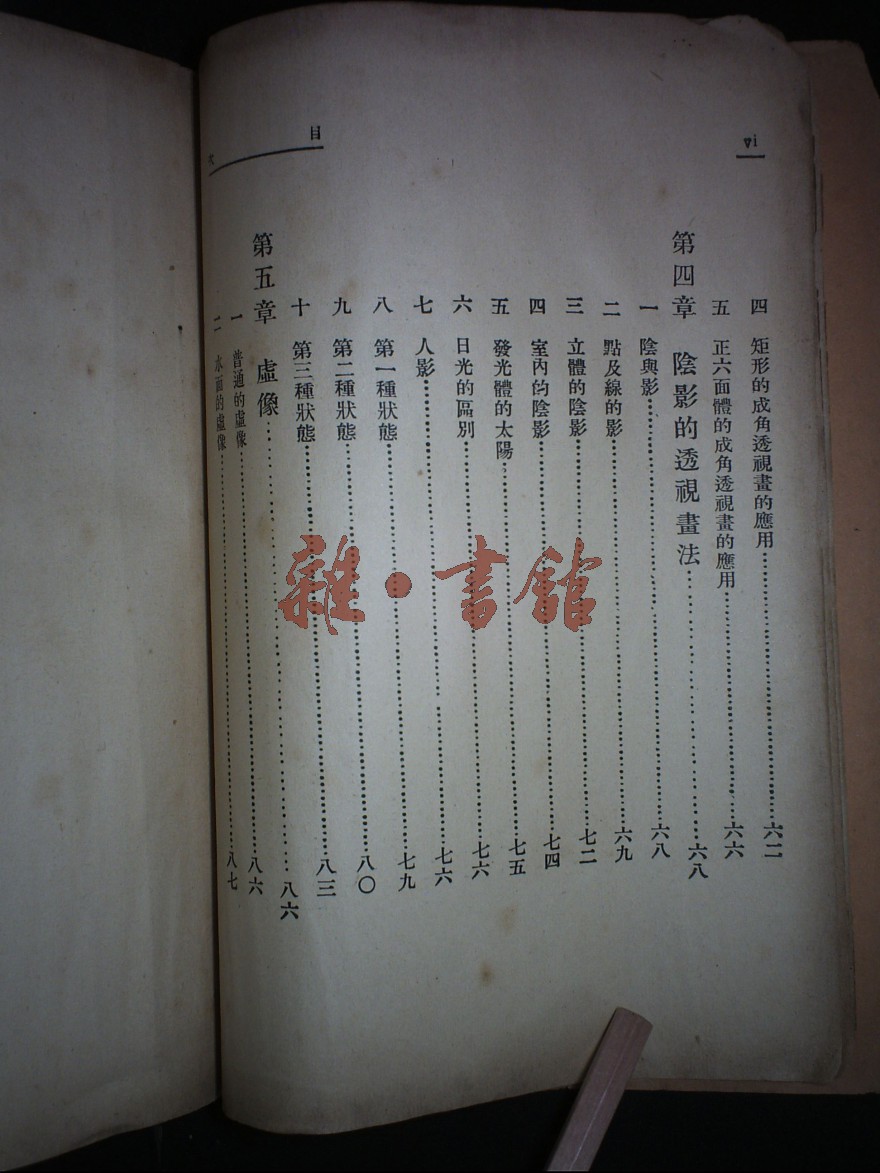 vi
目 次
四 矩形的成角透視畫的應用……六二
五 正六面體的成角透視畫的應用……六六
第四章 陰影的透視畫法……六八
一 陰與影……六八
二 點及線的影……六九
三 立體的陰影……七二
四 室內的陰影……七四
五 發光體的太陽……七五
六 日光的區別……七六
七 人影……七六
八 第一種狀態……七九
九 第二種狀態……八〇
十 第三種狀態……八三
第五章 虛像……八六
一 普通的虛像……八六
二 水面的虛像……八七
雜·書館